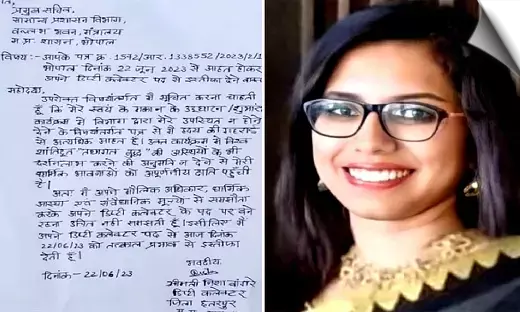 प्रमुख सचिव,
सामान्य प्रशासन विभाग,
वल्लभ भवन, मंत्रालय
म.प्र. शासन, भोपाल
विषय:- आपके पत्र क्र. 1592/आर. 1338552/2023/2/1
भोपाल दिनांक 22 जून 2023 से आहत होकर
अपने डिप्टी कलेक्टर पद से इस्तीफा देने
महोदय,
उपरोक्त विषयांतर्गत में सूचित करना चाहती
हूँ कि मेरे स्वयं के मकान के उद्घाटन
कार्यक्रम में विभाग द्वारा मेरे उपस्थित न होने
देने के पत्र से मैं
से अत्यधिक आहत हूँ। उक्त कार्यक्रम में विश्व
शांतिदूत "तथागत बुद्ध" की अस्थियों के भी
करने की अनुमति न देने से मेरी
धार्मिक भावनाओं को अपूर्णनीय क्षति पहुंची
है।
अतः मैं अपने मौलिक अधिकार, धार्मिक
आस्था एवं संवैधानिक मूल्यों से समझौता
करके अपने डिप्टी कलेक्टर के पद पर बने
रहना उचित नहीं समझती हूँ। इसीलिए मैं
अपने डिप्टी कलेक्टर पद से आज दिनांक
22/06/23 को तत्काल प्रभाव से इस्तीफा
देती हूँ।
भवदीय
दिनांक- 22/06/23
श्रीमती निशा बांगरे
डिप्टी कलेक्टर
जिला छतरपुर